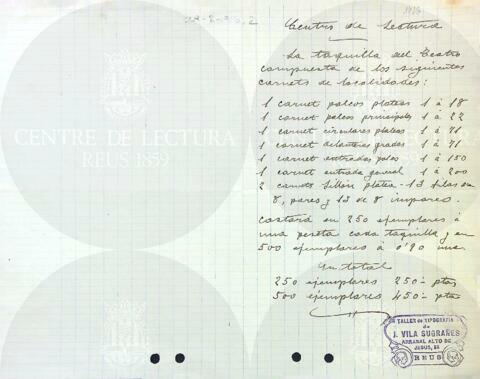 Centro de Lectura
La taquilla del Teatro
compuesta de los siguientes
carnets de localidades:
1 carnet palcos plateas 1 à 18
1 carnet palcos principales 1 à 22
1 carnet circulares plateas 1 à 71
1 carnet delanteras gradas 1 à 71
1 carnet entradas palco 1 à 150
1 carnet entrada general 1 à 200
2 carnets sillón platea - 13 filas de
8, pares y 13 de 8 impares.
Costará en 250 ejemplares à
una peseta cada taquilla y en
500 ejemplares à 0'90 una.
En total
250 ejemplares 250- ptas
500 ejemplares 450- ptas
TALLER de TIPOGRAFIA
de
J. VILA SUGRAÑES
ARRABAL ALTO DE
JESUS,
REUS
CENTRE DE LECTURA
REUS 1859